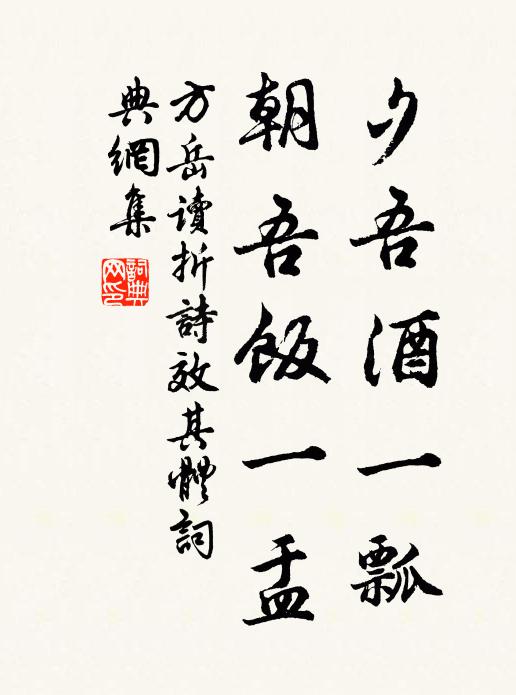 夕吾酒一瓢
朝吾飯一盂
方岳讀折詩效其體詞
典網集
詞典
网印